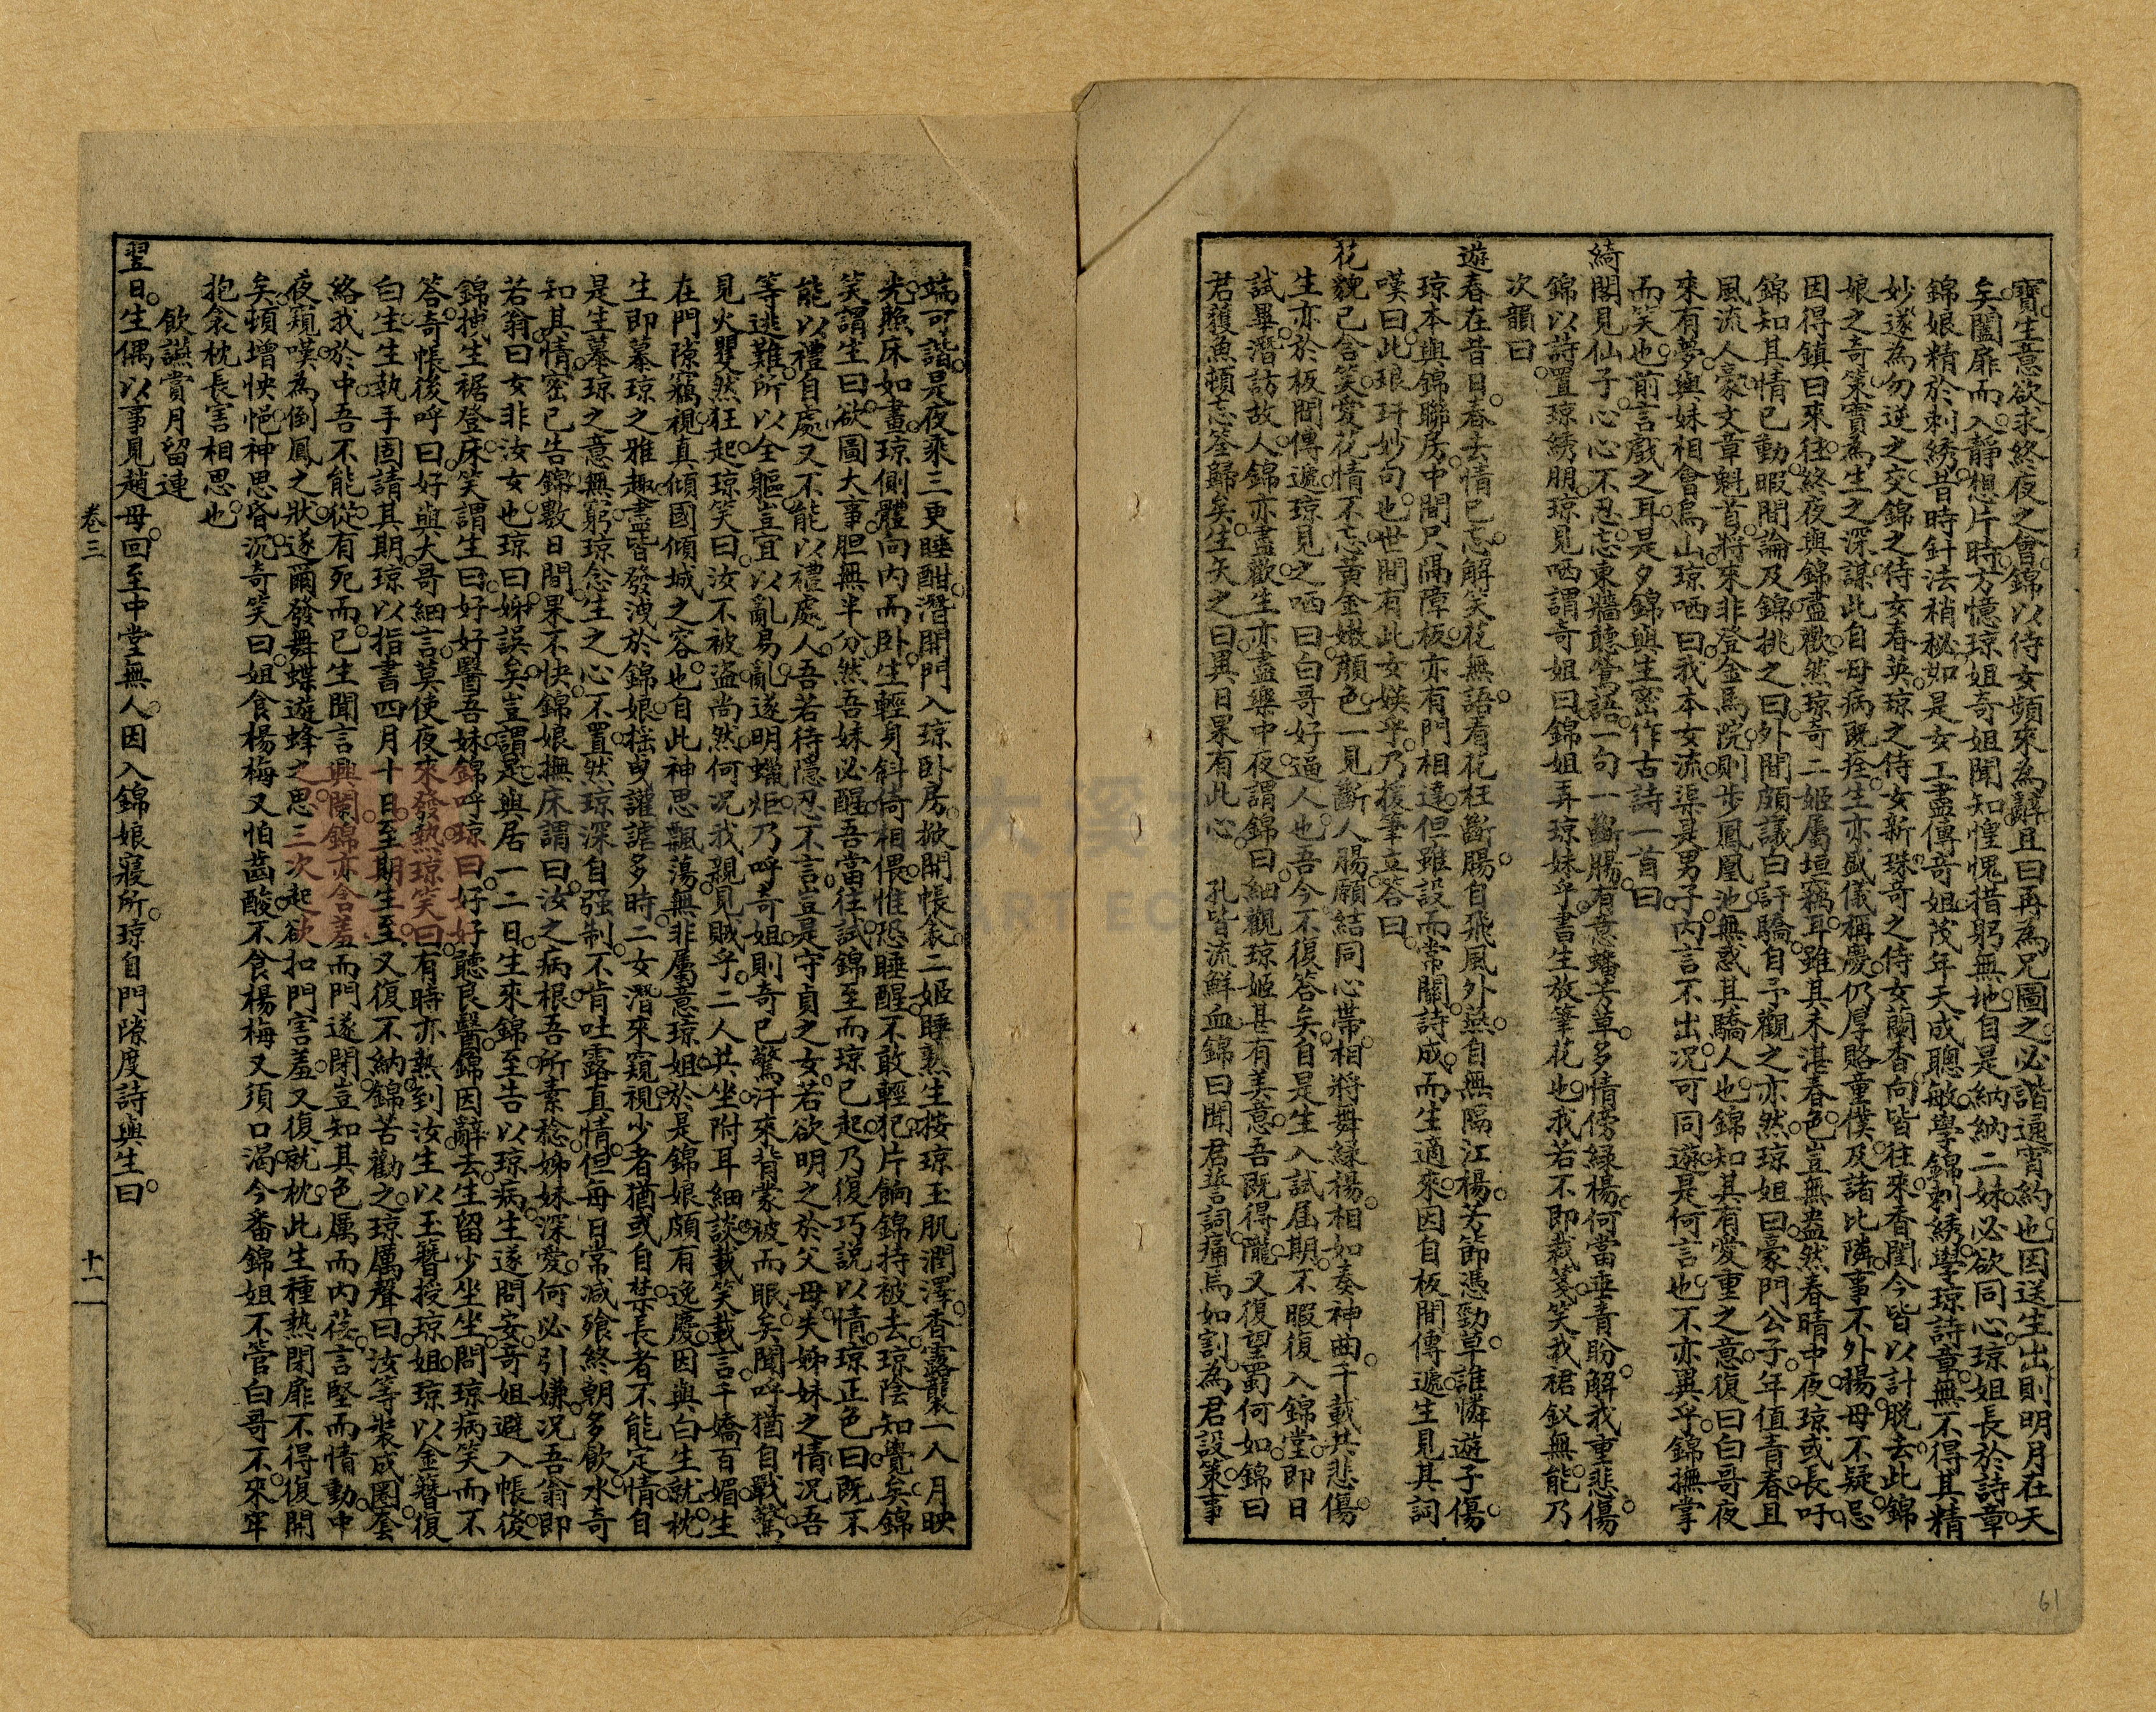 寶生意欲求終夜之會錦以侍女頻來為辭且曰再為兄圖之必諧通宵約也因送生出則明月在天
矣闔扉而入靜想片時方憶琼姐奇姐聞知惶愧措躬無地自是納納二妹必欲同心琼姐長於詩章
錦娘精於刺綉昔時針法稍秘如是女工盡傳奇姐茂年天成聰敏學錦刺綉學琼詩章無不得其精
妙遂為勿逆之交錦之侍女春英琼之侍女新珠奇之侍女蘭香向皆往來香閨今皆以計脫去此錦
娘之奇策實為生之深謀此自母病既痊生亦盛儀稱慶仍厚賂童僕及諸比隣事不外揚母不疑忌
因得鎮日來往終夜與錦盡歡然琼奇二姬属垣竊耳雖其未湛春色豈無盎然春晴中夜琼或長吁
錦知其情已動暇間論及錦挑之曰外間頗議白訐驕自予觀之亦然琼姐曰豪門公子年值青春且
風流人豪文章魁首將來非登金馬院則步鳳凰池無惑其驕人也錦知其有愛重之意復曰白哥夜
來有夢與妹相會烏山琼哂曰我本女流渠是男子內言不出況可同遊是何言也不亦異乎錦撫掌
而笑也前言戲之耳是夕錦與生密作古詩一首曰
綺閣見仙子心心不忍忘東牆聽鶯語一句一斷腸有意蟠芳草多情傍綠楊何當垂青盼解我重悲傷
錦以詩置琼綉朋琼見哂謂奇姐曰錦姐弄琼妹乎書生放筆花也我若不即裁箋笑我裙釵無能乃
次韻曰
遊春在昔日春去情已忘解笑花無語看花枉斷腸自飛風外燕自無隔江楊芳節憑勁草誰憐遊子傷
琼本與錦聯房中間尺隔障板亦有門相達但雖設而常關詩成而生適來因自板間傳遞生見其詞
嘆曰此琅玕妙句也世間有此女媖乎乃援筆立答曰
花貌已含笑愛花情不忘黃金嫩顏色一見斷人腸願結同心帶相將舞綠楊相如奏神曲千載共悲傷
生亦於板間傳遞琼見之哂曰白哥好逼人也吾今不復答矣自是生入試届期不暇復入錦堂即日
試畢潛訪故人錦亦盡歡生亦盡樂中夜謂錦曰細觀琼姬甚有美意吾既得隴又復望蜀何如錦曰
君獲魚頓忘筌歸矣生矢之曰異日果有此心　孔皆流鮮血錦曰聞君誓詞痛焉如割為君設策事
61
端可諧是夜乘三更睡酣潛開門入琼卧房掀開帳衾二姬睡熟生按琼玉肌潤澤香露襲一入月映
光照床如晝琼側體向內而卧生輕身斜倚相偎惟恐睡醒不敢輕犯片餉錦持被去琼陰知覺矣錦
笑謂生曰欲圖大事胆無半分然吾妹必醒吾當往試錦至而琼已起乃復巧說以情琼正色曰既不
能以禮自處又不能以禮處人吾若待隱忍不言豈是守貞之女若欲明之於父母失姊妹之情況吾
等逃難所以全軀豈宜以亂易亂遂明蠟炬乃呼奇姐則奇已驚汗來背蒙被而眠矣聞呼猶自戰驚
見火瞿然狂起琼笑曰汝不被盜尚然何況我親見賊乎二人共坐附耳細談載笑載言千嬌百媚生
在門隙竊視真傾國傾城之容也自此神思飄蕩無非屬意琼姐於是錦娘頗有逸慶因與白生就枕
生即慕琼之雅趣盡皆發洩於錦娘搖曳讙謔多時二女潛來窺視少者猶或自禁長者不能定情自
是生慕琼之意無窮琼念生之心不置然琼深自强制不肯吐露直情但每日常减飱終朝多飲水奇
知其情密已告錦數日間果不快錦娘撫床謂曰汝之病根吾所素稔姊妹深愛何必引嫌況吾翁即
若翁曰女非汝女也琼曰姊誤矣豈謂是與居一二日生來錦至告以琼病生遂問安奇姐避入帳後
錦拽生裾登床笑謂生曰好好醫吾妹錦呼琼曰好好聽良醫錦因辭去生留少坐坐問琼病笑而不
答奇帳後呼曰好與大哥細言莫使夜來發熱琼笑曰有時亦熱到汝生以玉簪授琼姐琼以金簪復
白生生執手固請其期琼以指書四月十日至期生至又復不納錦苦勸之琼厲聲曰汝等裝成圈套
絡我於中吾不能從有死而已生聞言興闌錦亦含羞而門遂閉豈知其色厲而內荏言堅而情動中
夜窺嘆為倒鳳之狀遂爾發舞蝶遊蜂之思三次起欲扣門害羞又復就枕此生種熱閉扉不得復開
矣頓增怏悒神思昏沉奇笑曰姐食楊梅又怕齒酸不食楊梅又須口渴今番錦姐不管白哥不來牢
抱衾枕長害相思也
飲讌賞月留連
翌日生偶以事見趙母回至中堂無人因入錦娘寢所琼自門隙度詩與生曰
卷三
十一